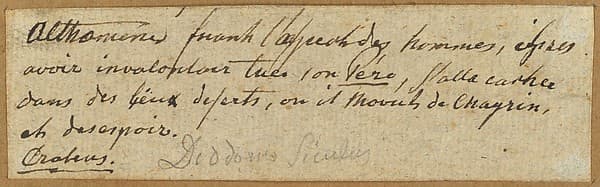 Althomenes fuiant l'aspect des hommes, après
avoir involontair tuer son Pére, s'alla cacher
dans des lieux deserts, ou il mourut de Chagrin,
et desespoir.
Crateus. Diodorus Siculus